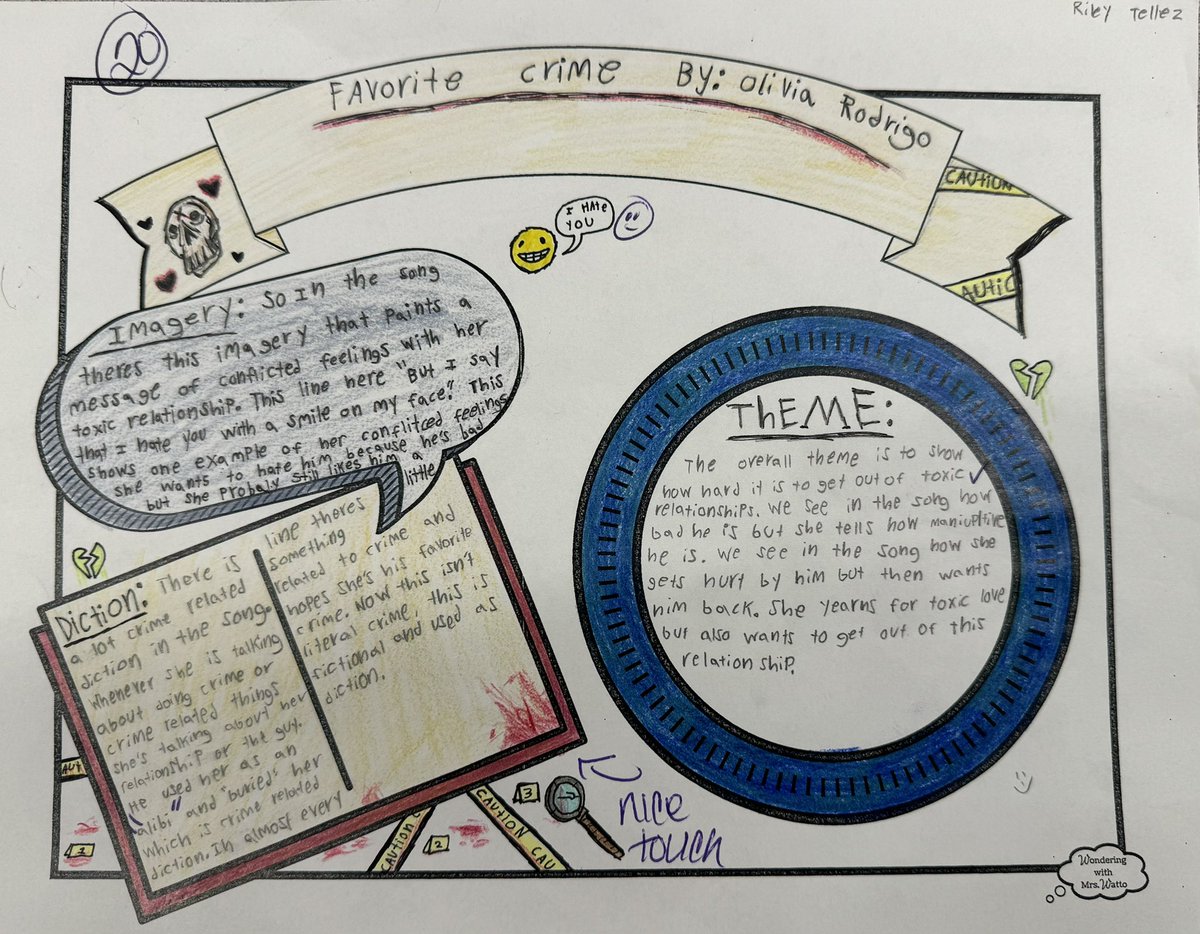 Riley Tellez
20
Favorite crime By: Olivia Rodrigo
CAUTION
AUTIC
I HAte
YOU
Imagery: So In the song
theres this imagery that paints a
message of conflicted feelings with her
toxic relationship. This line here "But I say
that I hate you with a smile on my face." This
shows one example of her conflitced feelings
she wants to hate him because he's bad
but she probaly still likes him a
little
Theme:
The overall theme is to show
how hard it is to get out of toxic
relationships. We see in the song how
bad he is but she tells how maniuptive
he is. We see in the song how she
gets hurt by him but then wants
him back. She yearns for toxic love
but also wants to get out of this
relationship.
Diction: There is
a lot crime related
diction in the song.
Whenever she is talking
about doing crime or
crime related things
she's talking about her
relationship or the guy.
He used her as an
"alibi" and "buried" her
which is crime related
diction. In almost every
line theres
something
related to crime and
hopes she's his favorite
crime. Now this isn't
literal crime, this is
fictional and used as
diction.
AUT
1
CAUTION
2
CAUTION CAU
3
nice
touch
Wondering
with
Mrs. Watto